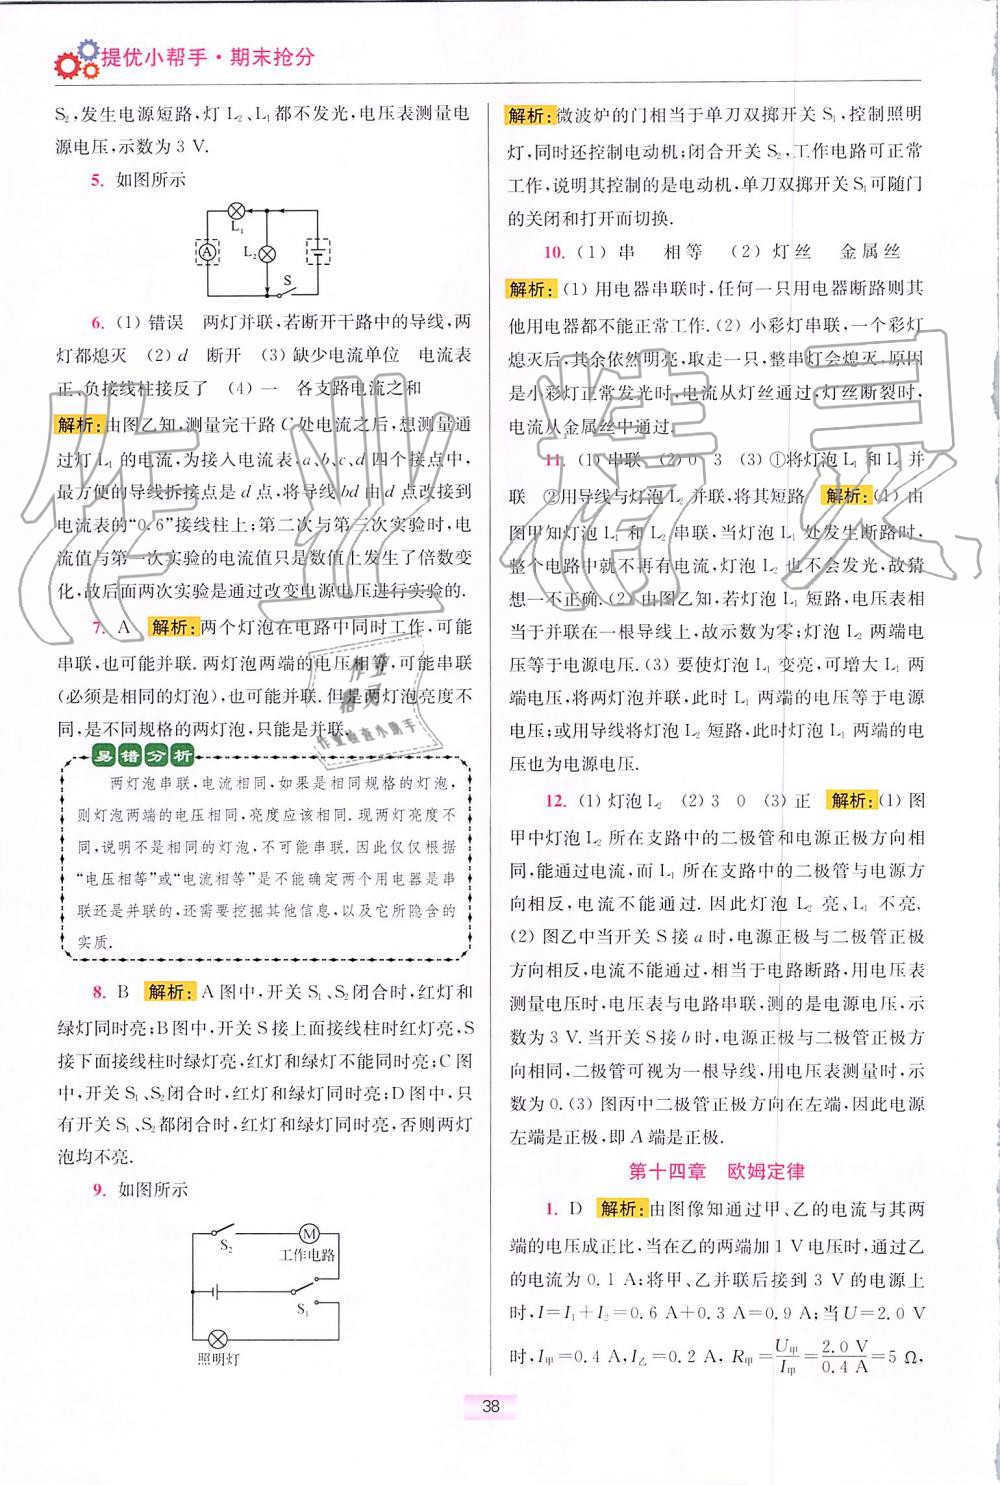 提优小帮手·期末抢分
S₂,发生电源短路,灯 L₂、L₁都不发光,电压表测量电
源电压,示数为 3 V.
5. 如图所示
L₁
A
L₂
S
6. (1) 错误 两灯并联,若断开干路中的导线,两
灯都熄灭 (2) d 断开 (3) 缺少电流单位 电流表
正、负接线柱接反了 (4) 一 各支路电流之和
解析:由图乙知,测量完干路 C 处电流之后,想测量通
过灯 L₁ 的电流,为接入电流表,a、b、c、d 四个接点中,
最方便的导线拆接点是 d 点,将导线 bd 由 d 点改接到
电流表的“0.6”接线柱上;第二次与第三次实验时,电
流值与第一次实验的电流值只是数值上发生了倍数变
化,故后面两次实验是通过改变电源电压进行实验的.
7. A 解析:两个灯泡在电路中同时工作,可能
串联,也可能并联.两灯泡两端的电压相等,可能串联
(必须是相同的灯泡),也可能并联.但是两灯泡亮度不
同,是不同规格的两灯泡,只能是并联.
易错分析
两灯泡串联,电流相同,如果是相同规格的灯泡,
则灯泡两端的电压相同,亮度应该相同.现两灯亮度不
同,说明不是相同的灯泡,不可能串联.因此仅仅根据
“电压相等”或“电流相等”是不能确定两个用电器是串
联还是并联的,还需要挖掘其他信息,以及它所隐含的
实质.
8. B 解析:A 图中,开关 S₁、S₂闭合时,红灯和
绿灯同时亮;B 图中,开关 S 接上面接线柱时红灯亮,S
接下面接线柱时绿灯亮,红灯和绿灯不能同时亮;C 图
中,开关 S₁、S₂闭合时,红灯和绿灯同时亮;D 图中,只
有开关 S₁、S₂都闭合时,红灯和绿灯同时亮,否则两灯
泡均不亮.
9. 如图所示
S₂
M
工作电路
S₁
照明灯
解析:微波炉的门相当于单刀双掷开关 S₁,控制照明
灯,同时还控制电动机;闭合开关 S₂,工作电路可正常
工作,说明其控制的是电动机,单刀双掷开关 S₁可随门
的关闭和打开而切换.
10. (1) 串 相等 (2) 灯丝 金属丝
解析:(1) 用电器串联时,任何一只用电器断路则其
他用电器都不能正常工作.(2) 小彩灯串联,一个彩灯
熄灭后,其余依然明亮,取走一只,整串灯会熄灭,原因
是小彩灯正常发光时,电流从灯丝通过;灯丝断裂时,
电流从金属丝中通过.
11. (1) 串联 (2) 0 3 (3) ①将灯泡 L₁ 和 L₂ 并
联 ②用导线与灯泡 L₂ 并联,将其短路 解析:(1) 由
图甲知灯泡 L₁ 和 L₂ 串联,当灯泡 L₁ 处发生断路时,
整个电路中就不再有电流,灯泡 L₂ 也不会发光,故猜
想一不正确.(2) 由图乙知,若灯泡 L₁ 短路,电压表相
当于并联在一根导线上,故示数为零;灯泡 L₂ 两端电
压等于电源电压.(3) 要使灯泡 L₁ 变亮,可增大 L₁ 两
端电压,将两灯泡并联,此时 L₁ 两端的电压等于电源
电压;或用导线将灯泡 L₂ 短路,此时 L₁ 两端的电
压也为电源电压.
12. (1) 灯泡 L₂ (2) 3 0 (3) 正 解析:(1) 图
甲中灯泡 L₂ 所在支路中的二极管和电源正极方向相
同,能通过电流,而 L₁ 所在支路中的二极管与电源方
向相反,电流不能通过.因此灯泡 L₂ 亮、L₁ 不亮.
(2) 图乙中当开关 S 接 a 时,电源正极与二极管正极
方向相反,电流不能通过,相当于电路断路,用电压表
测量电压时,电压表与电路串联,测的是电源电压,示
数为 3 V.当开关 S 接 b 时,电源正极与二极管正极方
向相同,二极管可视为一根导线,用电压表测量时,示
数为 0.(3) 图丙中二极管正极方向在左端,因此电源
左端是正极,即 A 端是正极.
第十四章 欧姆定律
1. D 解析:由图像知通过甲、乙的电流与其两
端的电压成正比,当在乙的两端加 1 V 电压时,通过乙
的电流为 0.1 A;将甲、乙并联后接到 3 V 的电源上
时,I=I₁+I₂=0.6 A+0.3 A=0.9 A;当 U=2.0 V
时,I甲=0.4 A,I乙=0.2 A,R甲=U甲/I甲=2.0 V/0.4 A=5 Ω,
38
作业精灵
作业
精灵
作业检查小助手